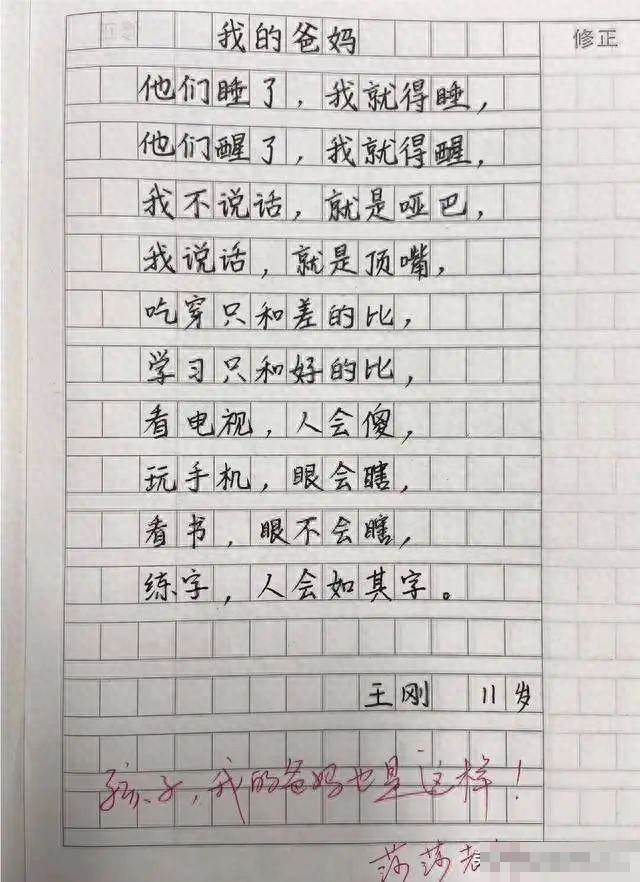 我的爸妈
修正
他们睡了，我就得睡，
他们醒了，我就得醒，
我不说话，就是哑巴，
我说话，就是顶嘴，
吃穿只和差的比，
学习只和好的比，
看电视，人会傻，
玩手机，眼会瞎，
看书，眼不会瞎，
练字，人会如其字。
王刚 11岁
孩子，我的爸妈也是这样！
莎莎老